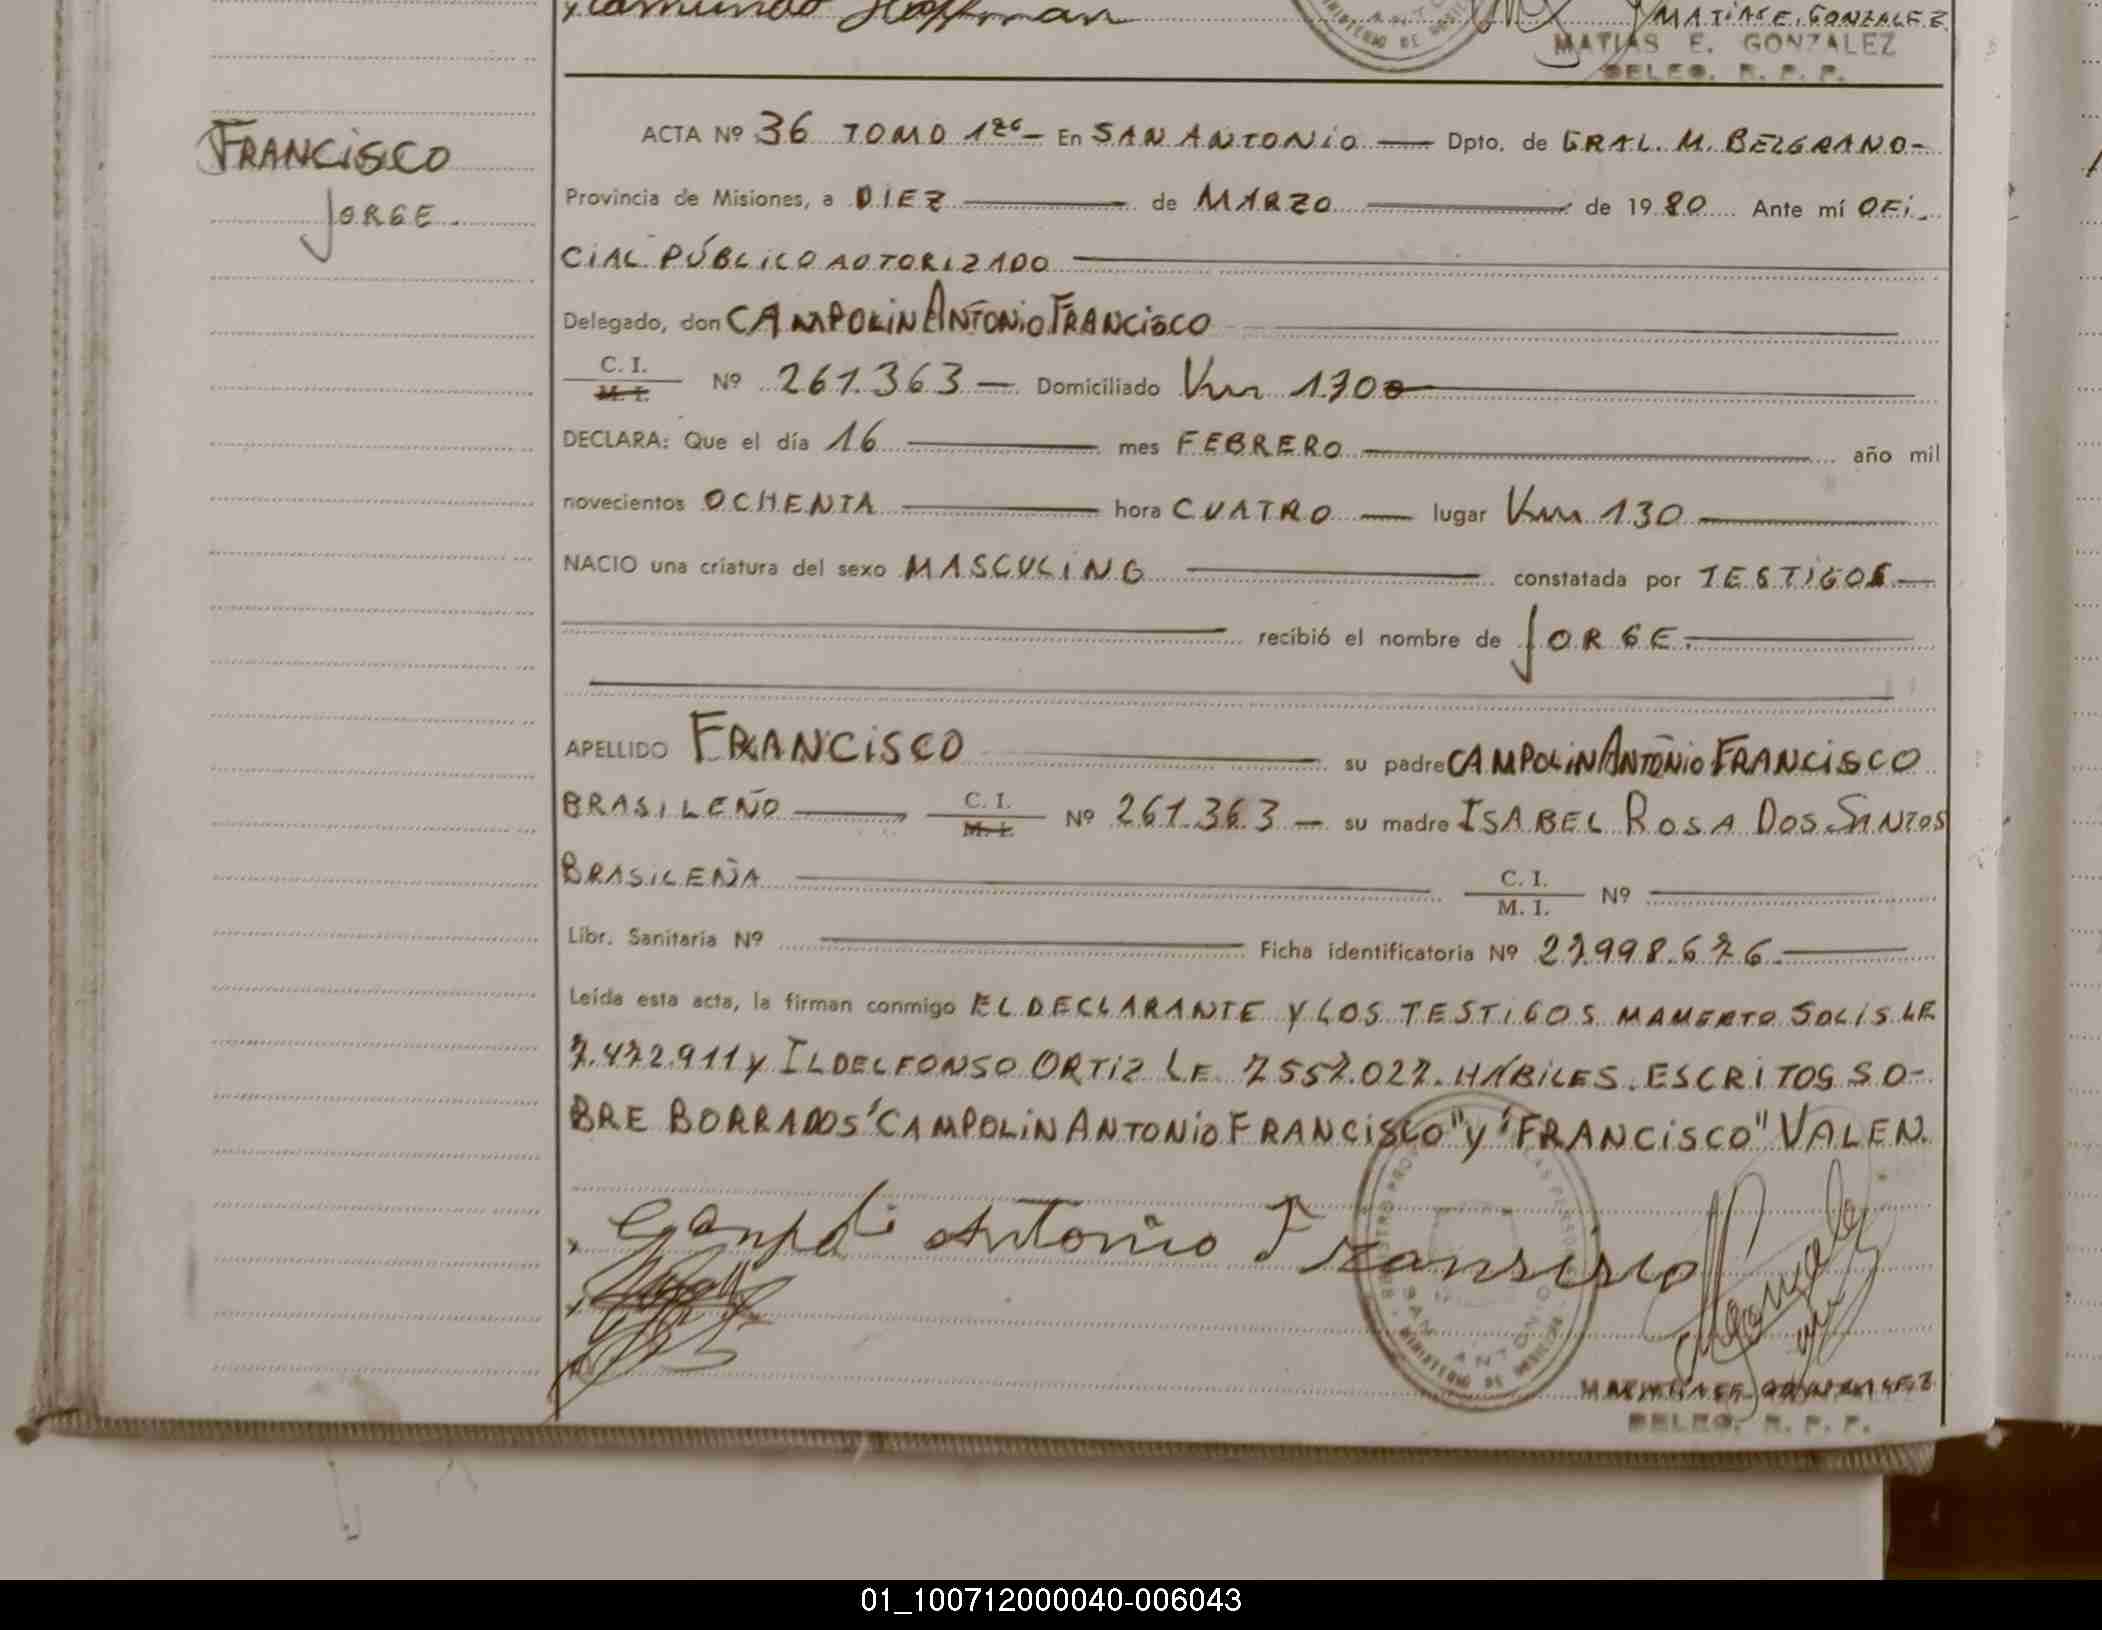 Hoffman
MATIAS E. GONZALEZ
MATIAS E. GONZALEZ
DELEG. R. P. P.
FRANCISCO
JORGE.
ACTA Nº 36 TOMO 1ro- En SAN ANTONIO — Dpto. de GRAL. M. BELGRANO-
Provincia de Misiones, a DIEZ — de MARZO — de 1980 Ante mí OFI-
CIAL PÚBLICO AUTORIZADO
Delegado, don CAMPOLIN ANTONIO FRANCISCO
C. I. / M. I. Nº 261.363 — Domiciliado Km 130
DECLARA: Que el día 16 — mes FEBRERO — año mil
novecientos OCHENTA — hora CUATRO — lugar Km 130 —
NACIO una criatura del sexo MASCULINO — constatada por TESTIGOS —
recibió el nombre de JORGE.
APELLIDO FRANCISCO — su padre CAMPOLIN ANTONIO FRANCISCO
BRASILEÑO — C. I. / M. I. Nº 261.363 — su madre ISABEL ROSA DOS SANTOS
BRASILEÑA — C. I. / M. I. Nº —
Libr. Sanitaria Nº — Ficha identificatoria Nº 27.998.676 —
Leída esta acta, la firman conmigo EL DECLARANTE Y LOS TESTIGOS MAMERTO SOLIS LE
7.472.911 y ILDELFONSO ORTIZ LE 7557.027. HÁBILES. ESCRITOS SO-
BRE BORRADOS "CAMPOLIN ANTONIO FRANCISCO" y "FRANCISCO" VALEN.
Antonio Fransisco
SAN ANTONIO
DELEG. R. P. P.
01_100712000040-006043